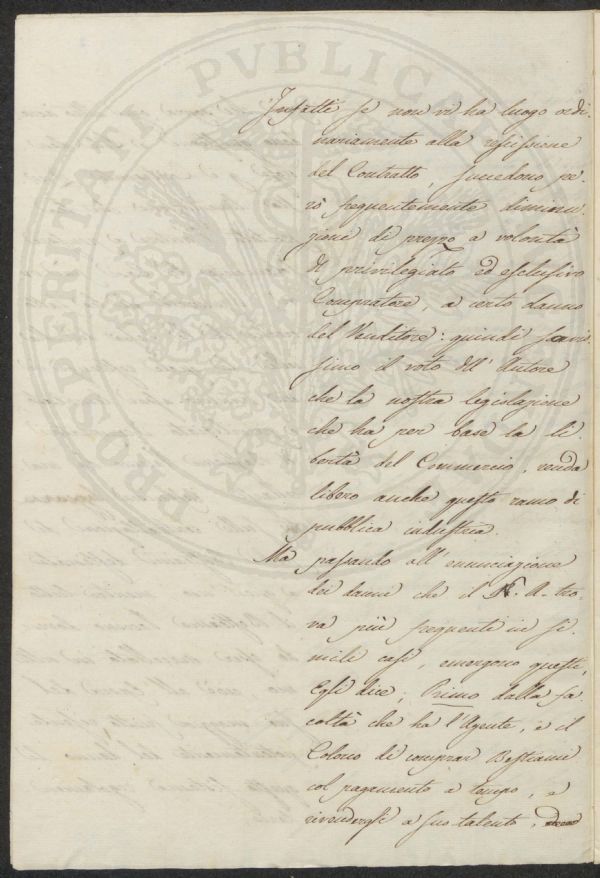 PROSPERITATI PVBLICAE
Infatti se non vi ha luogo ordi-
nariamente alla rescissione
del Contratto, succedono pe-
rò frequentemente diminu-
zione di prezzo a volontà
di privilegiato ed esclusivo
Compratore, a certo danno
del Venditore: quindi savis-
simo il voto dell' Autore
che la nostra legislazione
che ha per base la li-
bertà del Commercio, renda
libero anche questo ramo di
pubblica industria.
Ma passando all' enunciazione
dei danni che il A. tro-
va più frequente in si-
mili casi, emergono questi,
Egli dice; Primo dalla fa-
coltà che ha l'Agente, e il
Colono di comprar Bestiami
col pagamento a tempo, e
rivendergli a suo talento,